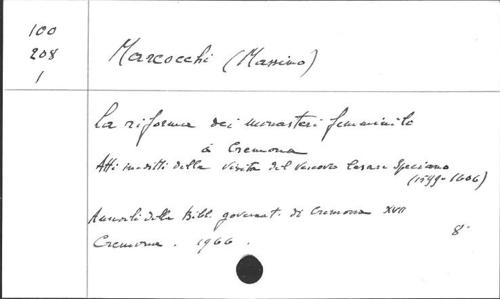 100
208
1
Marcocchi (Massimo)
La riforma dei monasteri femminili
a Cremona
Atti inediti della visita del vescovo Cesare Speciano
(1599-1606)
Annali della Bibl. governat. di Cremona XVII
8°
Cremona. 1966.